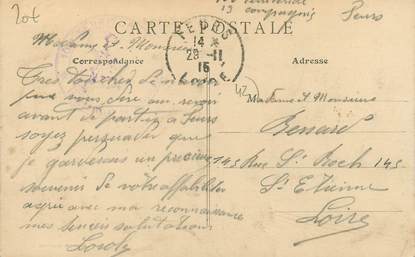 20f
territorial
13 compagnie
Feurs
CARTE POSTALE
Madame et Monsieur
FEURS
14
29-11
15
LOIRE
Correspondance
Adresse
Très touchés de
pas vous dire au revoir
avant de partir à Feurs
soyez persuader que
je garderais un précieux
souvenir de votre affabilité
agréé avec ma reconnaissance
mes sincères salutations
42
Madame et Monsieur
Benard
145 Rue St Roch 145
St Etienne
Loire